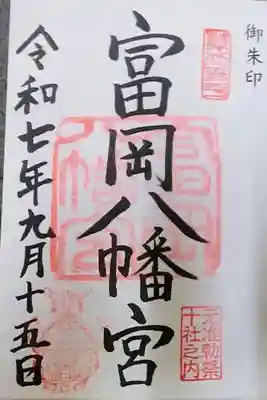 御朱印
富岡八幡宮
元准勅祭
十社之内
令和七年九月十五日